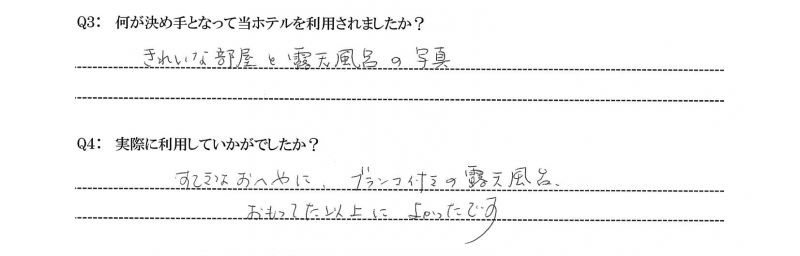 Q3: 何が決め手となって当ホテルを利用されましたか?
きれいな部屋と露天風呂の写真
Q4: 実際に利用していかがでしたか?
すてきなおへやに、ブランコ付きの露天風呂、
おもってた以上によかったです